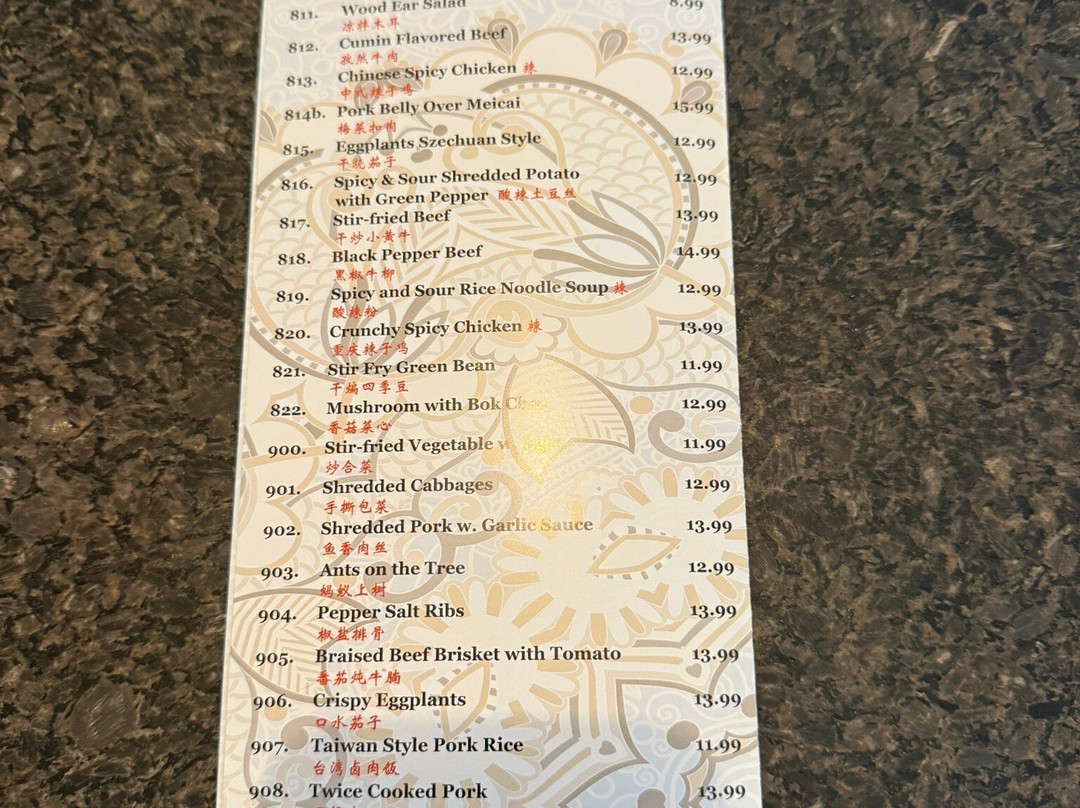 811. Wood Ear Salad 8.99
凉拌木耳
812. Cumin Flavored Beef 13.99
孜然牛肉
813. Chinese Spicy Chicken 辣 12.99
中式辣子鸡
814b. Pork Belly Over Meicai 15.99
梅菜扣肉
815. Eggplants Szechuan Style 12.99
干烧茄子
816. Spicy & Sour Shredded Potato 12.99
with Green Pepper 酸辣土豆丝
817. Stir-fried Beef 13.99
干炒小黄牛
818. Black Pepper Beef 14.99
黑椒牛柳
819. Spicy and Sour Rice Noodle Soup 辣 12.99
酸辣粉
820. Crunchy Spicy Chicken 辣 13.99
重庆辣子鸡
821. Stir Fry Green Bean 11.99
干煸四季豆
822. Mushroom with Bok 12.99
香菇菜心
900. Stir-fried Vegetable 11.99
炒合菜
901. Shredded Cabbages 12.99
手撕包菜
902. Shredded Pork w. Garlic Sauce 13.99
鱼香肉丝
903. Ants on the Tree 12.99
蚂蚁上树
904. Pepper Salt Ribs 13.99
椒盐排骨
905. Braised Beef Brisket with Tomato 13.99
番茄炖牛腩
906. Crispy Eggplants 13.99
口水茄子
907. Taiwan Style Pork Rice 11.99
台湾卤肉饭
908. Twice Cooked Pork 13.99